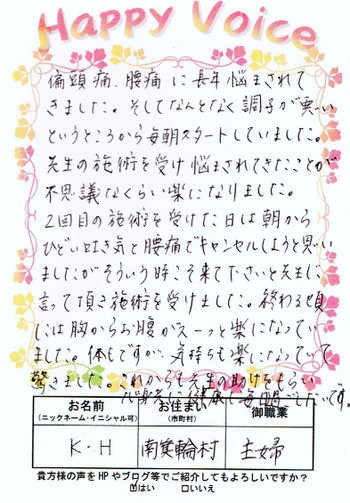 Happy Voice
偏頭痛、腰痛に長年悩まされて
きました。そしてなんとなく調子が悪い
というところから毎朝スタートしていました。
先生の施術を受け悩まされてきたことが
不思議なくらい楽になりました。
2回目の施術を受けた日は朝から
ひどい吐き気と腰痛でキャンセルしようと思い
ましたがそういう時こそ来て下さいと先生に
言って頂き施術を受けました。終わる頃
には胸からお腹がスーッと楽になってい
ました。体もですが、気持ちも楽になっていて
驚きました。これからも先生の助けをもらい
心身共に健康に毎日過ごしたいです。
お名前
(ニックネーム・イニシャル可)
お住まい
(市町村)
御職業
K・H
南箕輪村
主婦
貴方様の声をHPやブログ等でご紹介してもよろしいですか?
☑はい □いいえ